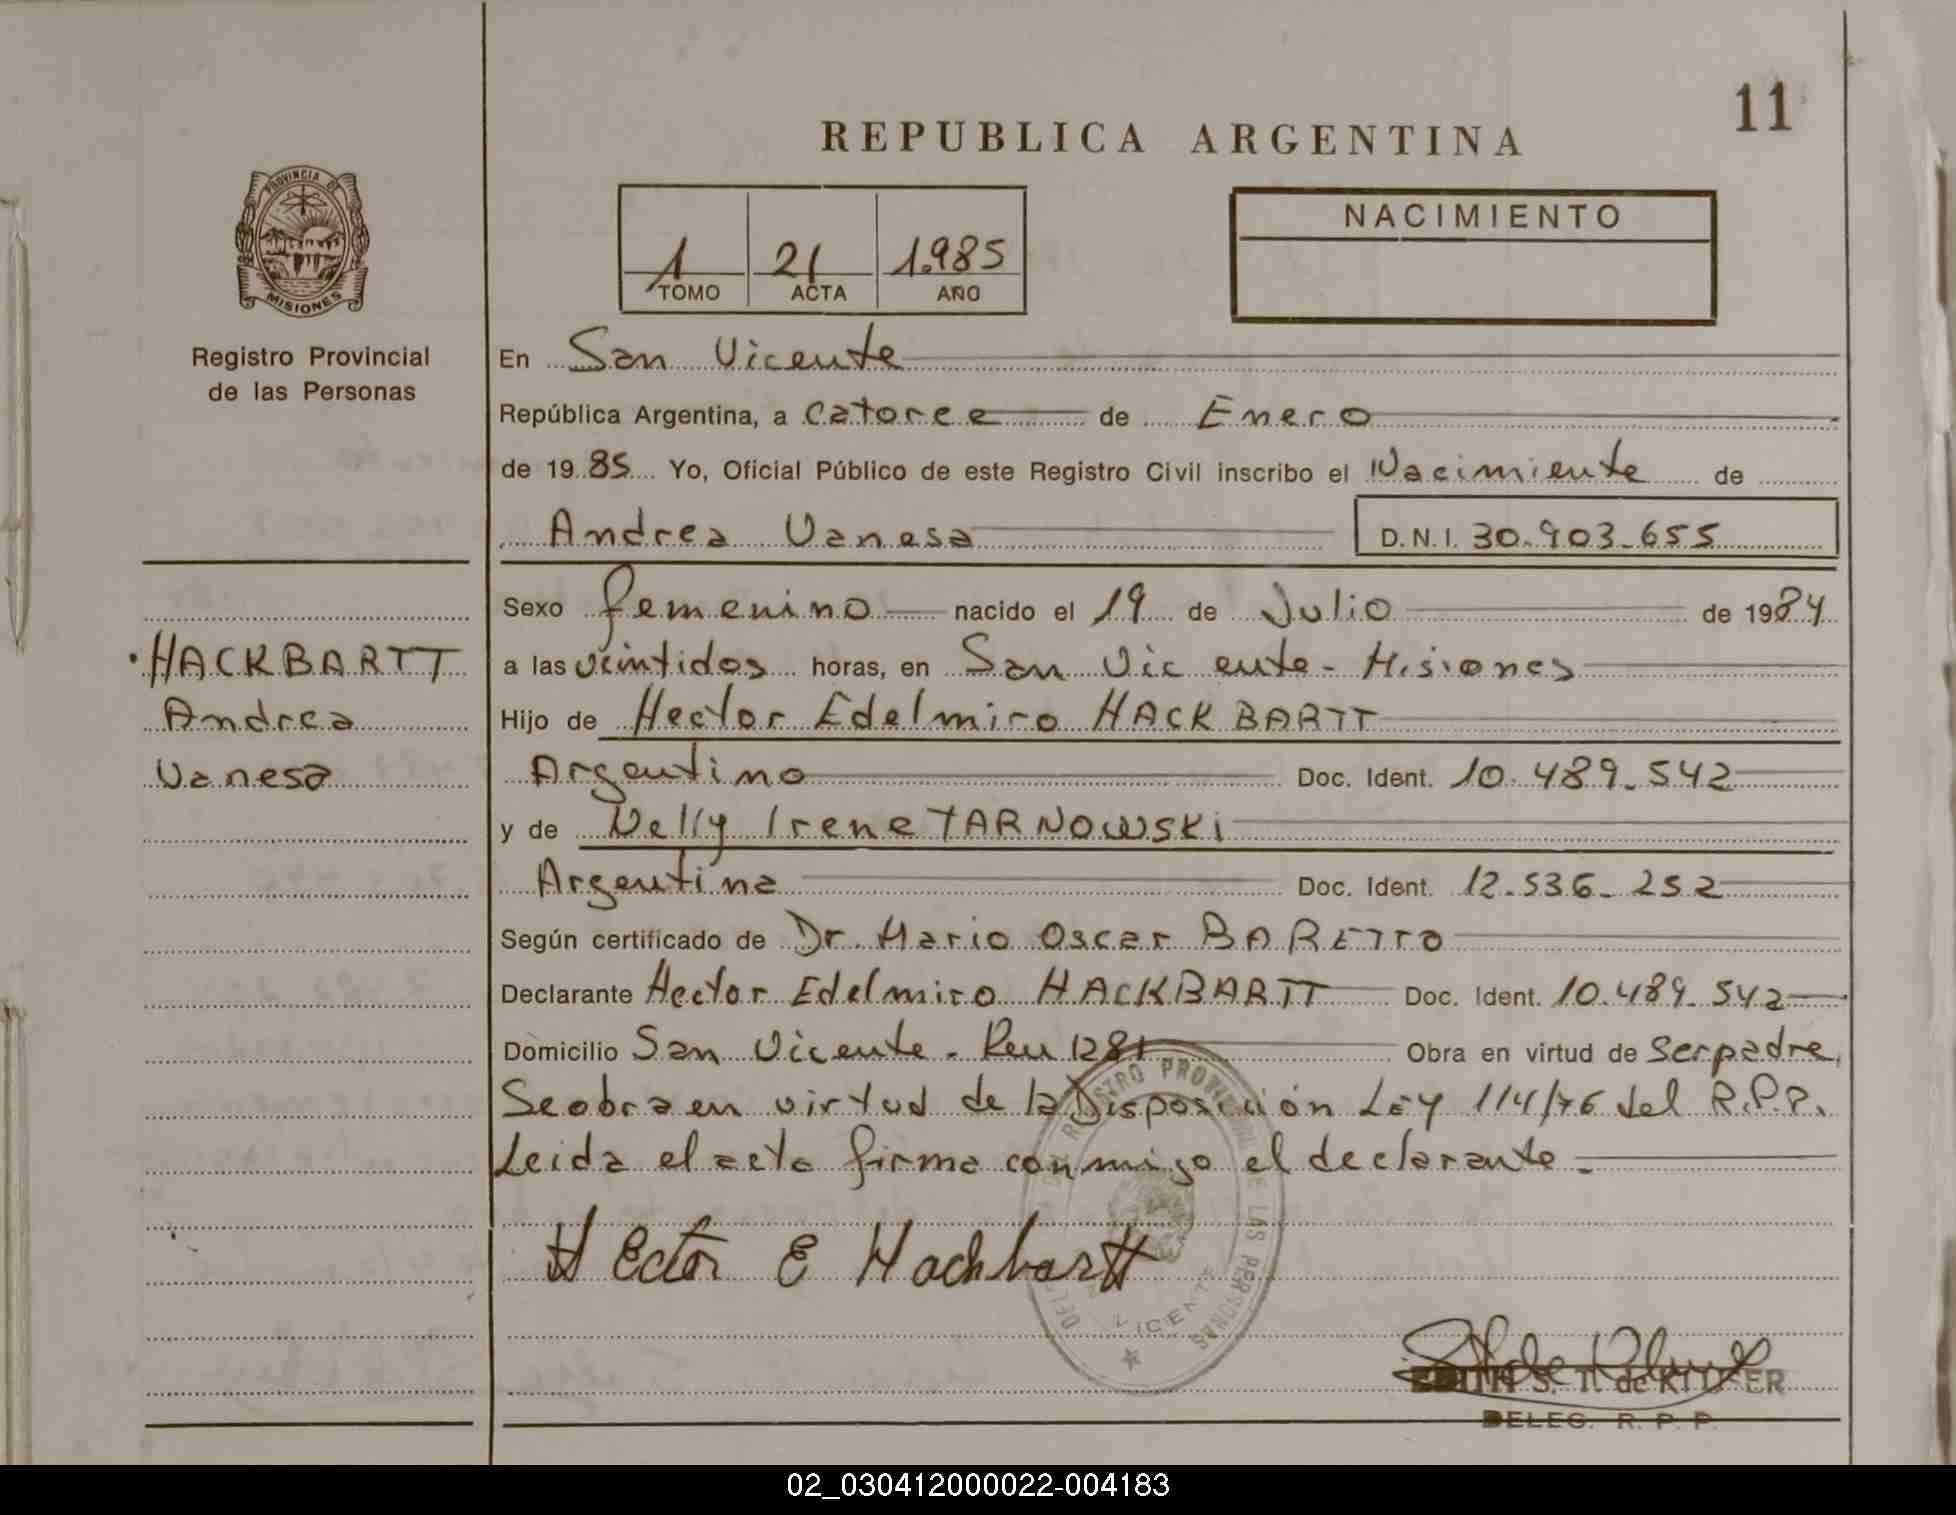 11
REPUBLICA ARGENTINA
PROVINCIA DE
MISIONES
Registro Provincial
de las Personas
1 21 1.985
TOMO ACTA AÑO
NACIMIENTO
En San Vicente
República Argentina, a catorce de Enero
de 19 85 Yo, Oficial Público de este Registro Civil inscribo el Nacimiente de
Andrea Vanesa D.N.I. 30.903.655
HACKBARTT
Andrea
Vanesa
Sexo femenino nacido el 19 de Julio de 1984
a las veintidos horas, en San Vicente - Misiones
Hijo de Hector Edelmiro HACKBARTT
Argentino Doc. Ident. 10.489.542
y de Nelly Irene TARNOWSKi
Argentina Doc. Ident. 12.536.252
Según certificado de Dr. Mario Oscar BARETTO
Declarante Hector Edelmiro HACKBARTT Doc. Ident. 10.489.542
Domicilio San Vicente - 1281 Obra en virtud de Ser padre,
Se obra en virtud de la Disposición Ley 114/76 del R.P.P.
Leida el acta firma conmigo el declarante.
Hector E Hackbartt
REGISTRO PROVINCIAL DE LAS PERSONAS
VICENTE
S. T. de
DELEG. R. P. P.
02_030412000022-004183